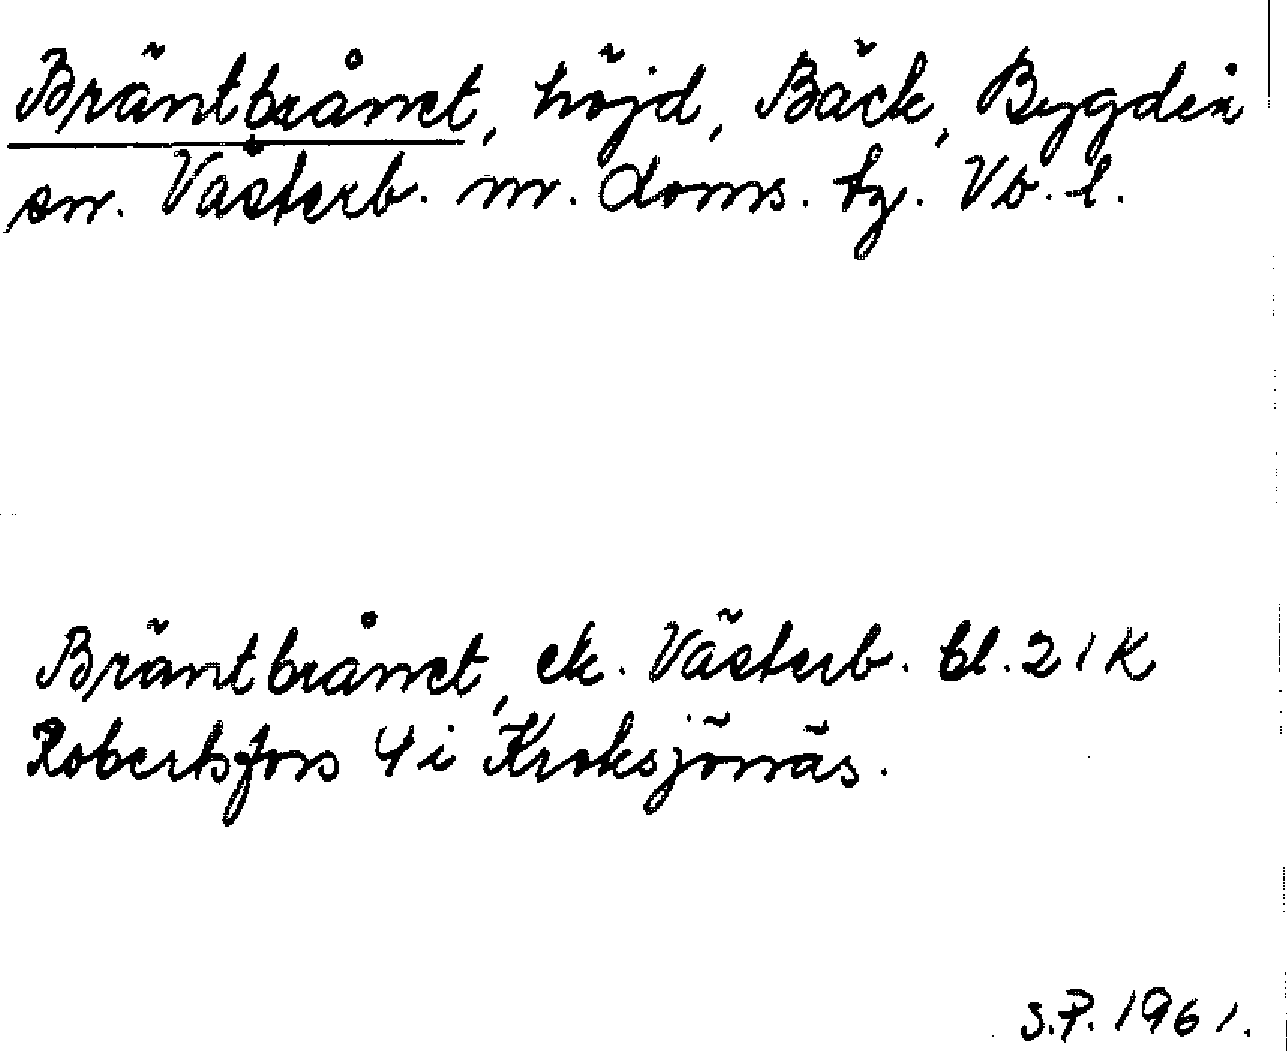 Bräntbrånet, höjd, Bäck, Bygdeå
sn. Västerb. n. doms. tg. Vb. l.
Bräntbrånet, ek. Västerb. bl. 21 K
Robertsfors 4 i Kroksjönäs.
S.P. 1961.